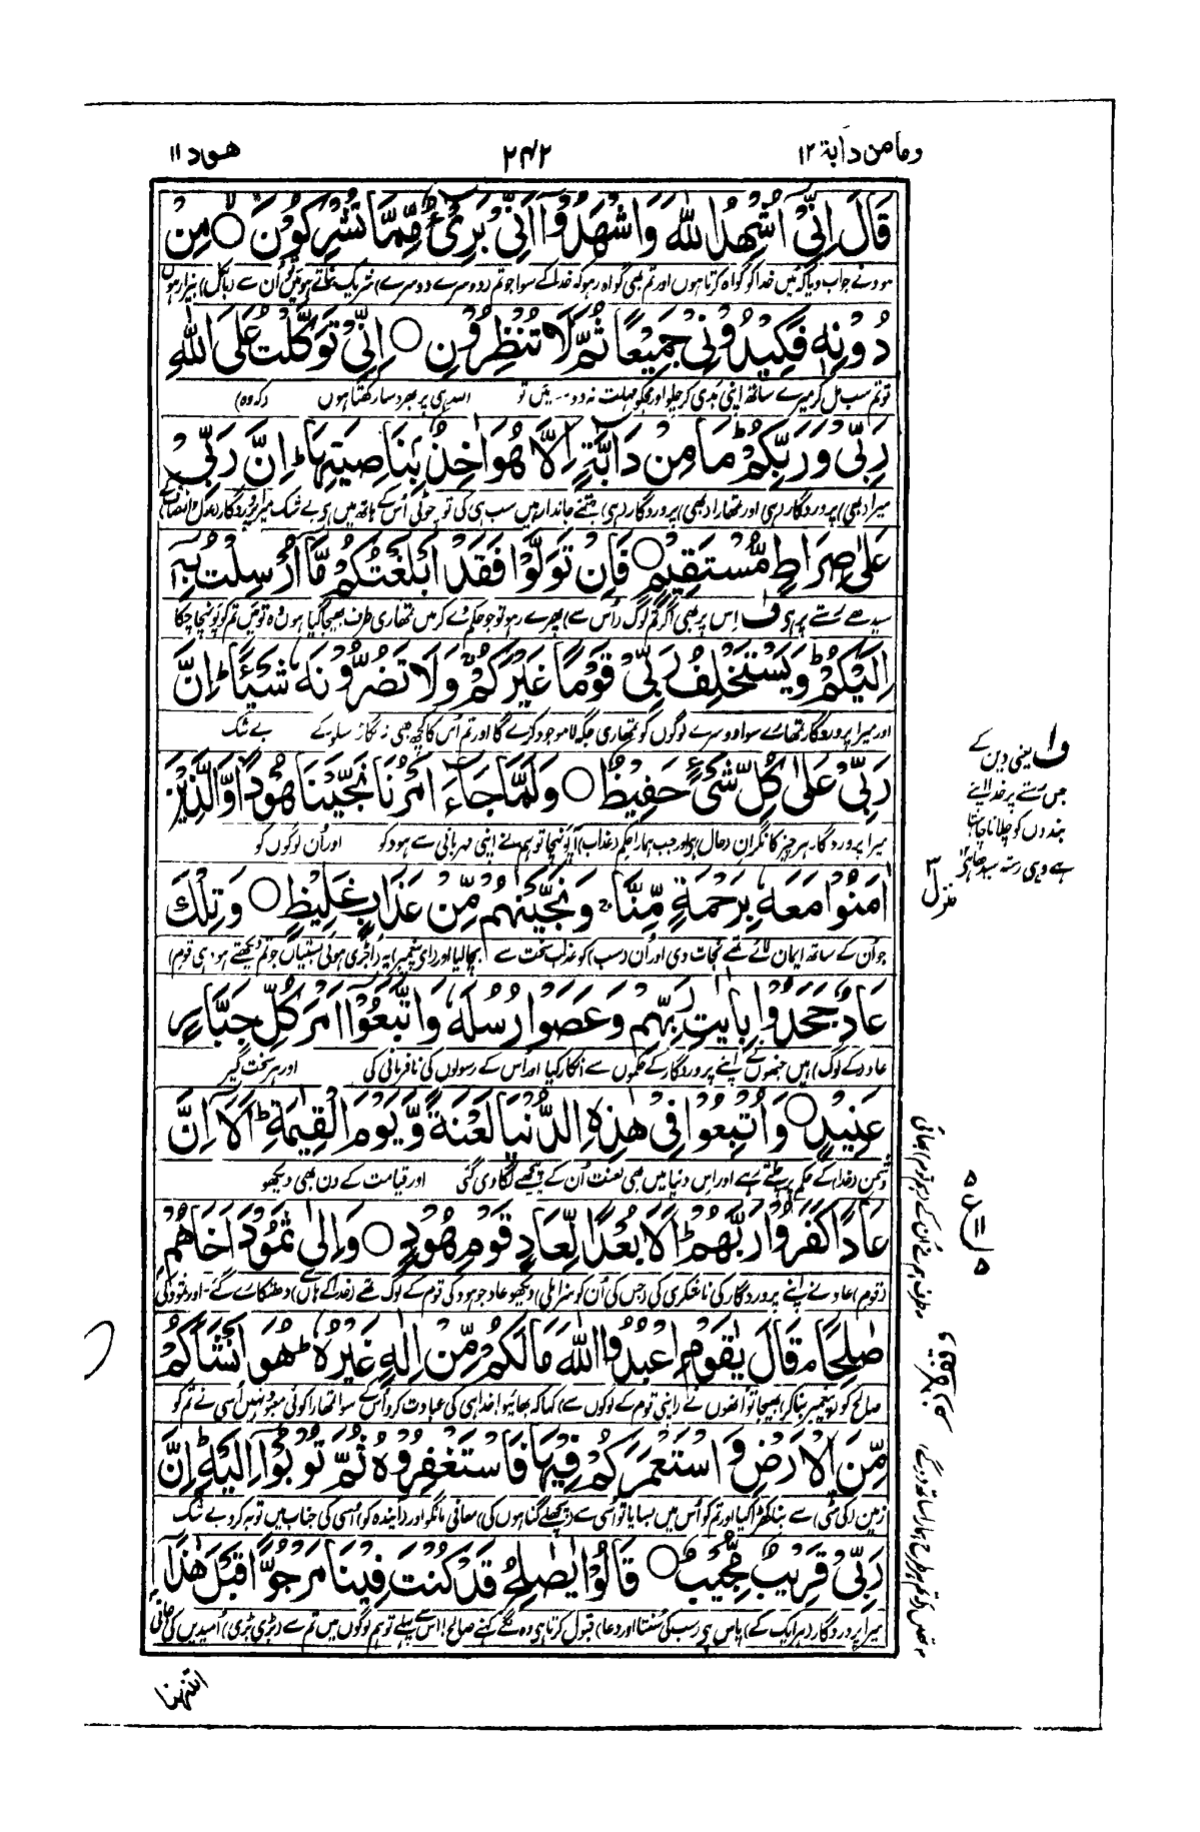 وما من دابة ۱۲
۳۴۲
ھود ۱۱
قَالَ اِنِّیْۤ اُشْهِدُ اللّٰهَ وَ اشْهَدُوْۤا اَنِّیْ بَرِیْٓءٌ مِّمَّا تُشْرِكُوْنَ ○ مِنْ
ہود نے جواب دیا کہ میں خدا کو گواہ کرتا ہوں اور تم بھی گواہ رہو کہ خدا کے سوا جو تم (دوسرے دوسرے) شریک بناتے ہو میں تو اُن سے (بالکل) بیزار ہوں
دُوْنِهٖ فَكِیْدُوْنِیْ جَمِیْعًا ثُمَّ لَا تُنْظِرُوْنِ ○ اِنِّیْ تَوَكَّلْتُ عَلَی اللّٰهِ
تو تم سب مل کر میرے ساتھ اپنی بدی کر چلو اور مجھ کو مہلت نہ دو۔ میں تو اللہ ہی پر بھروسا رکھتا ہوں (کہ وہ)
رَبِّیْ وَ رَبِّكُمْ ؕ مَا مِنْ دَآبَّةٍ اِلَّا هُوَ اٰخِذٌۢ بِنَاصِیَتِهَا ؕ اِنَّ رَبِّیْ
میرا (بھی) پروردگار (ہی) اور تمھارا (بھی) پروردگار (ہی) جتنے جاندار ہیں سب ہی کی تو چوٹی اُس کے ہاتھ میں ہی بے شک میرا پروردگار (عدل و انصاف کے)
عَلٰی صِرَاطٍ مُّسْتَقِیْمٍ ○ فَاِنْ تَوَلَّوْا فَقَدْ اَبْلَغْتُكُمْ مَّاۤ اُرْسِلْتُ بِهٖۤ
سیدھے رستے پر ہی ف اِس پر بھی اگر تم لوگ (اُس سے) پھرے رہو تو جو حکم دے کر میں تمھاری طرف بھیجا گیا ہوں وہ تو میں تم کو پہنچا چکا
اِلَیْكُمْ ؕ وَ یَسْتَخْلِفُ رَبِّیْ قَوْمًا غَیْرَكُمْ ۚ وَ لَا تَضُرُّوْنَهٗ شَیْـًٔا ؕ اِنَّ
اور میرا پروردگار تمھارے سوا دوسرے لوگوں کو تمھاری جگہ لا موجود کرے گا اور تم اُس کا کچھ بھی نہ بگاڑ سکو گے بے شک
رَبِّیْ عَلٰی كُلِّ شَیْءٍ حَفِیْظٌ ○ وَ لَمَّا جَآءَ اَمْرُنَا نَجَّیْنَا هُوْدًا وَّ الَّذِیْنَ
میرا پروردگار ہر چیز کا نگران (حال) ہی اور جب ہمارا حکم (عذاب) آ پہنچا تو ہم نے اپنی مہربانی سے ہود کو اور اُن لوگوں کو
اٰمَنُوْا مَعَهٗ بِرَحْمَةٍ مِّنَّا ۚ وَ نَجَّیْنٰهُمْ مِّنْ عَذَابٍ غَلِیْظٍ ○ وَ تِلْكَ
جو اُن کے ساتھ ایمان لائے تھے نجات دی اور اُن (سب) کو عذاب سخت سے بچا لیا اور (ای پیغمبر) یہ (اُجڑی ہوئی بستیاں جو تم دیکھتے ہو) (ہی قوم)
عَادٌ جَحَدُوْا بِاٰیٰتِ رَبِّهِمْ وَ عَصَوْا رُسُلَهٗ وَ اتَّبَعُوْۤا اَمْرَ كُلِّ جَبَّارٍ
عاد (کے لوگ) ہیں جنھوں نے اپنے پروردگار کے حکموں سے انکار کیا اور اُس کے رسولوں کی نافرمانی کی اور ہر سخت گیر
عَنِیْدٍ ○ وَ اُتْبِعُوْا فِیْ هٰذِهِ الدُّنْیَا لَعْنَةً وَّ یَوْمَ الْقِیٰمَةِ ؕ اَلَاۤ اِنَّ
دشمن (خدا) کے حکم پر چلتے رہے اور اِس دنیا میں بھی لعنت اُن کے پیچھے لگا دی گئی اور قیامت کے دن بھی دیکھو
عَادًا كَفَرُوْا رَبَّهُمْ ؕ اَلَا بُعْدًا لِّعَادٍ قَوْمِ هُوْدٍ ○ وَ اِلٰی ثَمُوْدَ اَخَاهُمْ
(قوم) عاد نے اپنے پروردگار کی ناشکری کی (جس کی اُن کو سزا ملی) دیکھو عاد جو ہود کی قوم کے لوگ تھے (خدا کے ہاں) دھتکارے گئے۔ اور ثمود کی
صٰلِحًا ۘ قَالَ یٰقَوْمِ اعْبُدُوا اللّٰهَ مَا لَكُمْ مِّنْ اِلٰهٍ غَیْرُهٗ ؕ هُوَ اَنْشَاَكُمْ
صالح کو (پیغمبر بنا کر) بھیجا تو اُنھوں نے (اپنی قوم کے لوگوں سے) کہا کہ بھائیو! خدا ہی کی عبادت کرو اُس کے سوا تمھارا کوئی معبود نہیں اُسی نے تم کو
مِّنَ الْاَرْضِ وَ اسْتَعْمَرَكُمْ فِیْهَا فَاسْتَغْفِرُوْهُ ثُمَّ تُوْبُوْۤا اِلَیْهِ ؕ اِنَّ
زمین (کی مٹی) سے بنا کھڑا کیا اور تم کو اُس میں بسایا تو اُسی سے (پچھلے گناہوں کی) معافی مانگو اور (آیندہ کو) اُسی کی جناب میں توبہ کرو بے شک
رَبِّیْ قَرِیْبٌ مُّجِیْبٌ ○ قَالُوْا یٰصٰلِحُ قَدْ كُنْتَ فِیْنَا مَرْجُوًّا قَبْلَ هٰذَاۤ
میرا پروردگار (ہر ایک کے) پاس ہی (سب کی سنتا اور دعا) قبول کرتا ہی وہ لگے کہنے صالح! اس سے پہلے تو ہم لوگوں میں تم سے (بڑی بڑی) اُمیدیں کی جاتی
اتنھنا
ف۱ یعنی دین کے
جس رستے پر خدا اپنے
بندوں کو چلانا چاہتا
ہے وہی رستہ سیدھا ہی ۱۲
منزل ۳
ع
طرف ہم نے اُن کے (ہم قوم) بھائی